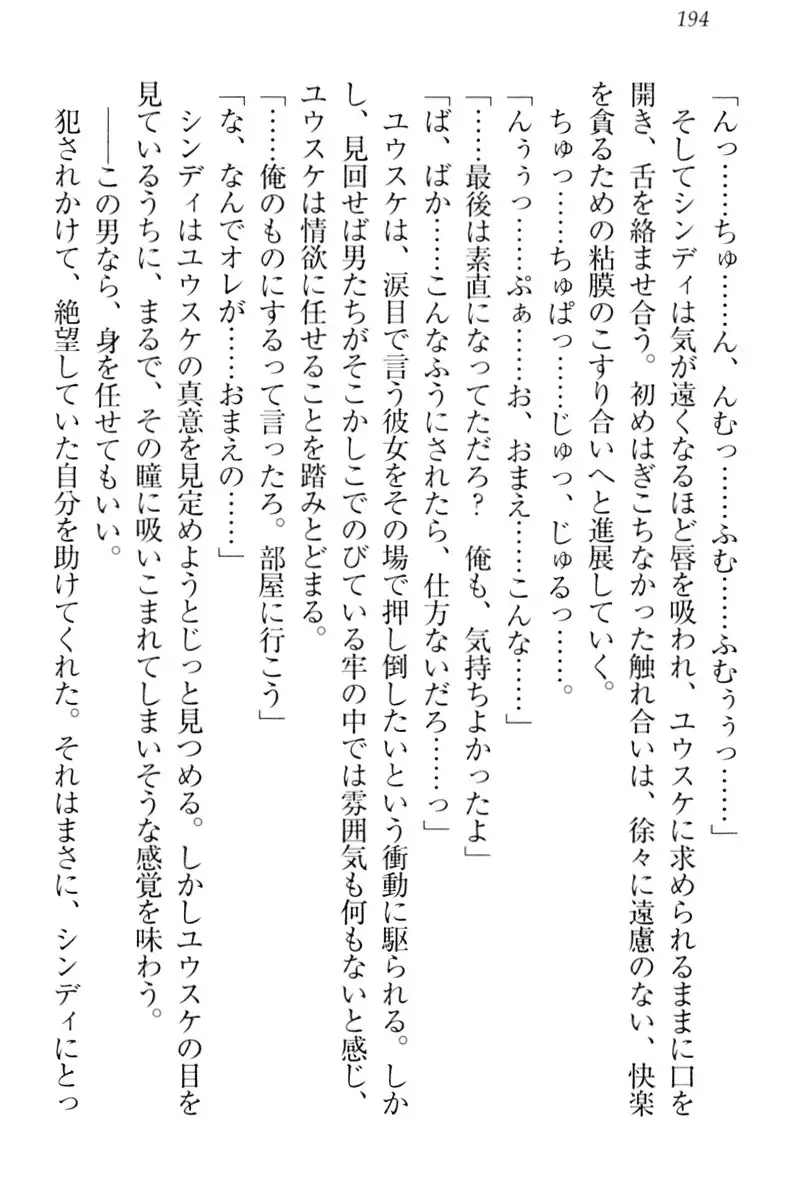 194
「んっ……ちゅ……ん、んむっ……ふむ……ふむぅぅっ……」
そしてシンディは気が遠くなるほど唇を吸われ、ユウスケに求められるままに口を
開き、舌を絡ませ合う。初めはぎこちなかった触れ合いは、徐々に遠慮のない、快楽
を貪るための粘膜のこすり合いへと進展していく。
ちゅっ……ちゅぱっ……じゅっ、じゅるっ……。
「んぅぅっ……ぷぁ……お、おまえ……こんな……」
「……最後は素直になってただろ？　俺も、気持ちよかったよ」
「ば、ばか……こんなふうにされたら、仕方ないだろ……っ」
ユウスケは、涙目で言う彼女をその場で押し倒したいという衝動に駆られる。しか
し、見回せば男たちがそこかしこでのびている牢の中では雰囲気も何もないと感じ、
ユウスケは情欲に任せることを踏みとどまる。
「……俺のものにするって言ったろ。部屋に行こう」
「な、なんでオレが……おまえの……」
シンディはユウスケの真意を見定めようとじっと見つめる。しかしユウスケの目を
見ているうちに、まるで、その瞳に吸いこまれてしまいそうな感覚を味わう。
――この男なら、身を任せてもいい。
犯されかけて、絶望していた自分を助けてくれた。それはまさに、シンディにとっ